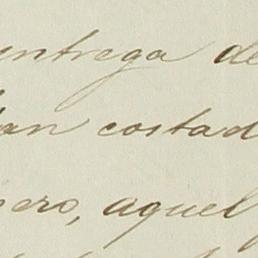 entrega de
han costad
pero, aquel